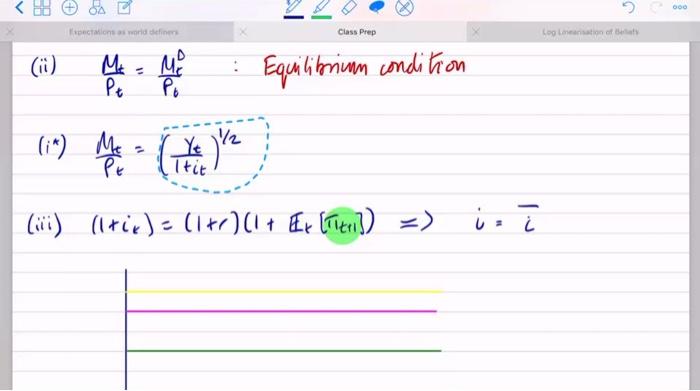 Expectations as world definers
Class Prep
Log Linearisation of Beliefs
(ii) Mt/Pt = Mt^D/Pt : Equilibrium condition
(i*) Mt/Pt = (Yt/1+it)^1/2
(iii) (1+it) = (1+r)(1 + Et[πt+1]) => i = i̅